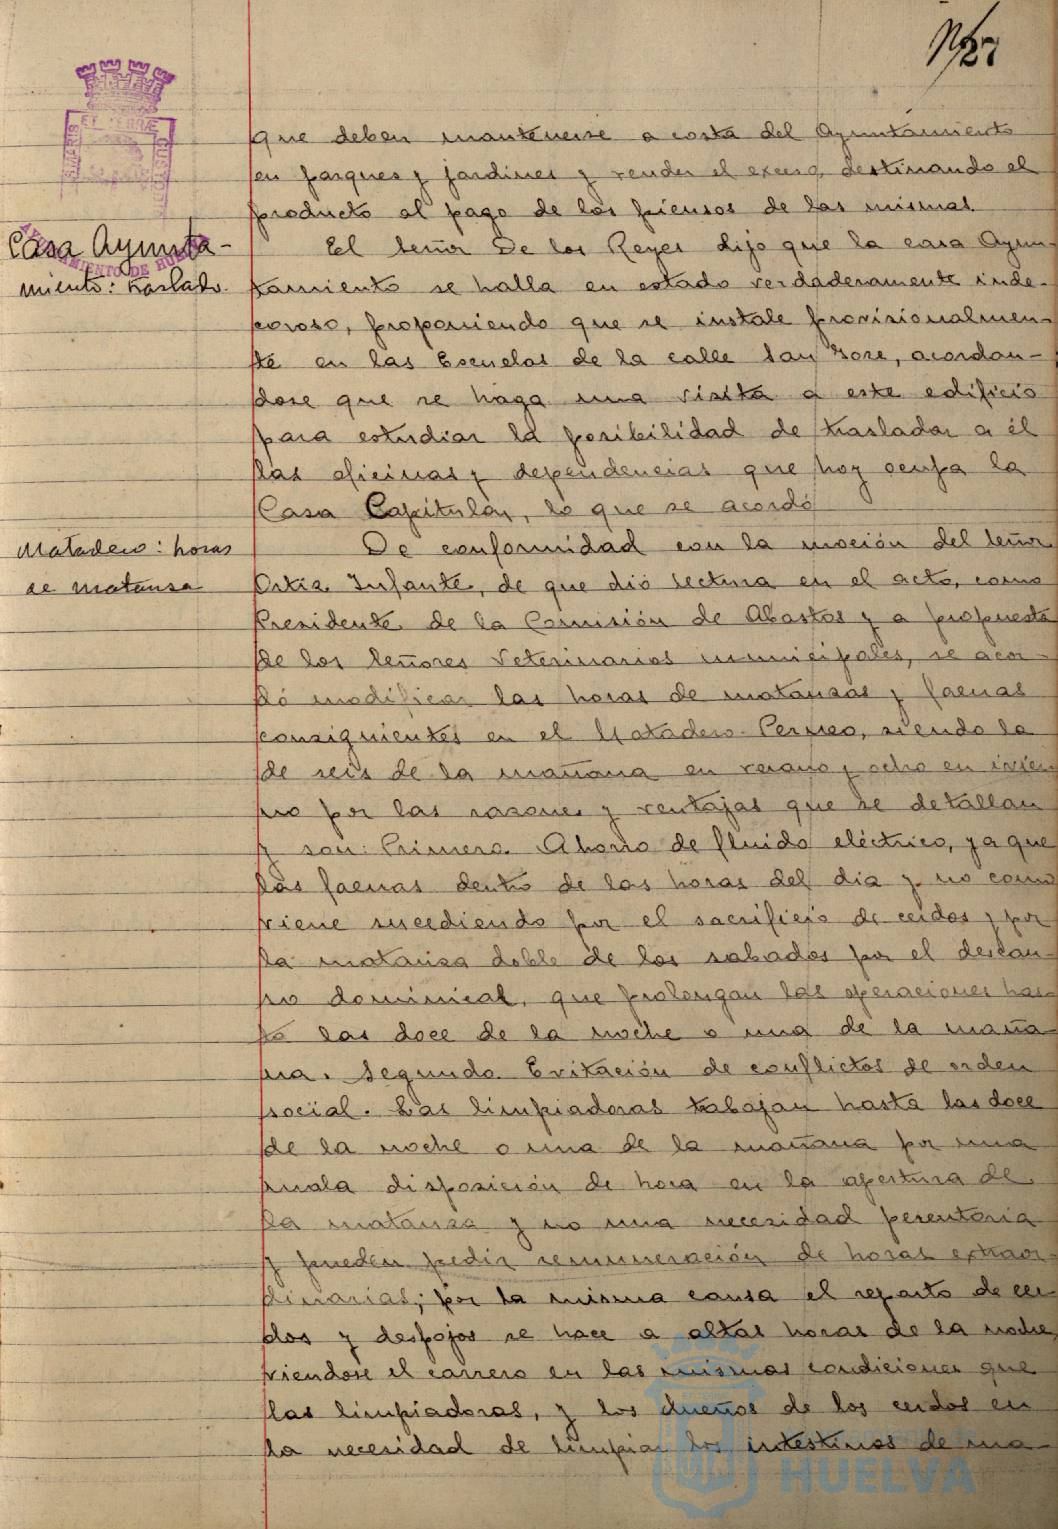 Nº 27
que deben mantenerse a costa del Ayuntamiento
en parques y jardines y vender el exceso, destinando el
producto al pago de los piensos de las mismas.
Casa Ayunta-
miento: traslado.
El señor De los Reyes dijo que la casa Ayun-
tamiento se halla en estado verdaderamente inde-
coroso, proponiendo que se instale provisionalmen-
te en las Escuelas de la calle San José, acordan-
dose que se haga una visita a este edificio
para estudiar la posibilidad de trasladar a él
las oficinas y dependencias que hoy ocupa la
Casa Capitular, lo que se acordó
Matadero: horas
de matansa
De conformidad con la moción del señor
Ortiz Infante, de que dió lectura en el acto, como
Presidente de la Comisión de Abastos y a propuesta
de los señores Veterinarios municipales, se acor-
dó modificar las horas de matansas y faenas
consiguientes en el Matadero Pernio, siendo la
de seis de la mañana en verano y ocho en invier
no por las razones y ventajas que se detallan
y son: Primero. Ahorro de fluido eléctrico, ya que
las faenas dentro de las horas del dia y no como
viene sucediendo por el sacrificio de cerdos y por
la matansa doble de los sabados por el descan-
so dominical, que prolongan las operaciones has-
ta las doce de la noche o una de la maña
na. Segundo. Evitación de conflictos de orden
social. Las limpiadoras trabajan hasta las doce
de la noche o una de la mañana por una
mala disposición de hora en la apertura de
la matansa y no una necesidad perentoria
y pueden pedir remuneración de horas extraor-
dinarias; por la misma causa el reparto de cer
dos y despojos se hace a altas horas de la noche,
viendose el carrero en las mismas condiciones que
las limpiadoras, y los dueños de los cerdos en
la necesidad de limpiar los intestinos de ma-
AYUNTAMIENTO DE HUELVA
HUELVA